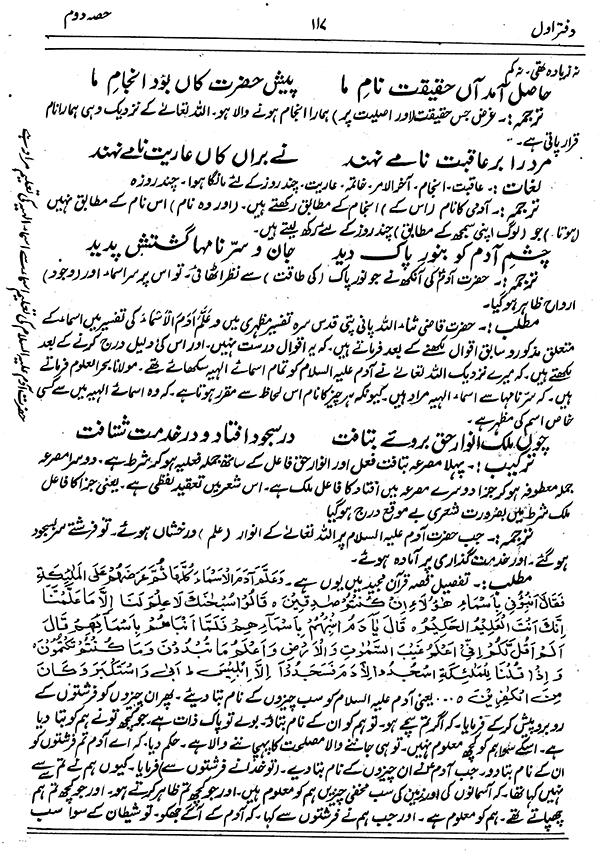 دفتر اول ۱۱۷ حصہ دوم
نہ زیادہ تھی۔ نہ کم
حاصل آمد آں حقیقت نامِ ما پیش حضرت کاں بود انجامِ ما
ترجمہ:۔ غرض جس حقیقت (اور اصلیت پر) ہمارا انجام ہونے والا ہو۔ اللہ تعالیٰ کے نزدیک وہی ہمارا نام
قرار پاتی ہے۔
مرد را بر عاقبت نامے نہند نے براں کاں عاریت نامے نہند
لغات:۔ عاقبت۔ انجام۔ آخر الامر۔ خاتمہ۔ عاریت۔ چند روز کے لئے مانگا ہوا۔ چند روزہ
ترجمہ:۔ آدمی کا نام (اس کے) انجام کے مطابق رکھتے ہیں۔ (اور وہ نام) اس نام کے مطابق نہیں
(ہوتا۔) جو (لوگ اپنی سمجھ کے مطابق) چند روز کے لئے رکھ لیتے ہیں۔
چشمِ آدم کو بنورِ پاک دید جان و سرِّ نامہا گشتش پدید
ترجمہ:۔ حضرت آدمؑ کی آنکھ نے جو نور پاک (کی طاقت) سے نظر اٹھائی۔ تو اس پر سر اسماء اور (وجود)
ارواح ظاہر ہو گیا۔
مطلب:۔ حضرت قاضی ثناء اللہ پانی پتی قدس سرہ تفسیر مظہری میں وَعَلَّمَ اٰدَمَ الْاَسْمَآءَ کی تفسیر میں اسماء کے
متعلق مذکور و سابق اقوال لکھنے کے بعد فرماتے ہیں۔ کہ یہ اقوال درست نہیں۔ اور اس کی دلیل درج کرنے کے بعد
لکھتے ہیں۔ کہ میرے نزدیک اللہ تعالیٰ نے آدم علیہ السلام کو تمام اسمائے الٰہیہ سکھائے تھے۔ مولانا بحر العلوم فرماتے
ہیں۔ کہ سر نامہا سے اسماء الٰہیہ مراد ہیں۔ کیونکہ ہر چیز کا نام اس لحاظ سے مقرر ہوتا ہے۔ کہ وہ اسمائے الٰہیہ میں سے کسی
خاص اسم کی مظہر ہے۔
چوں ملک انوارِ حق بروئے بتافت در سجود افتاد و در خدمت شتافت
ترکیب:۔ پہلا مصرعہ بتافت فعل اور انوار حق فاعل کے ساتھ جملہ فعلیہ ہو کر شرط ہے۔ دوسرا مصرعہ
جملہ معطوفہ ہو کر جزا دوسرے مصرعہ میں افتاد کا فاعل ملک ہے۔ اس شعر میں تعقید لفظی ہے۔ یعنی جزا کا فاعل
ملک شرط میں بضرورت شعری بے موقع درج ہو گیا
ترجمہ:۔ جب حضرت آدم علیہ السلام پر اللہ تعالیٰ کے انوار (علم) درخشاں ہوئے۔ تو فرشتے سر بسجود
ہو گئے۔ اور خدمت گذاری پر آمادہ ہوئے۔
مطلب:۔ تفصیل قصہ قرآن مجید میں یوں ہے۔ وَعَلَّمَ اٰدَمَ الْاَسْمَآءَ كُلَّهَا ثُمَّ عَرَضَهُمْ عَلَى الْمَلٰٓئِكَةِ
فَقَالَ اَنْۢبِـُٔوْنِيْ بِاَسْمَآءِ هٰٓؤُلَآءِ اِنْ كُنْتُمْ صٰدِقِيْنَ ۝ قَالُوْا سُبْحٰنَكَ لَا عِلْمَ لَنَآ اِلَّا مَا عَلَّمْتَنَا
اِنَّكَ اَنْتَ الْعَلِيْمُ الْحَكِيْمُ ۝ قَالَ يٰٓاٰدَمُ اَنْۢبِئْهُمْ بِاَسْمَآئِهِمْ فَلَمَّآ اَنْۢبَاَهُمْ بِاَسْمَآئِهِمْ قَالَ
اَلَمْ اَقُلْ لَّكُمْ اِنِّيْٓ اَعْلَمُ غَيْبَ السَّمٰوٰتِ وَالْاَرْضِ وَاَعْلَمُ مَا تُبْدُوْنَ وَمَا كُنْتُمْ تَكْتُمُوْنَ ۝
وَاِذْ قُلْنَا لِلْمَلٰٓئِكَةِ اسْجُدُوْا لِاٰدَمَ فَسَجَدُوْٓا اِلَّآ اِبْلِيْسَ ؕ اَبٰى وَاسْتَكْبَرَ وَكَانَ
مِنَ الْكٰفِرِيْنَ ۝ ... یعنی آدم علیہ السلام کو سب چیزوں کے نام بتا دیئے۔ پھر ان چیزوں کو فرشتوں کے
رو برو پیش کر کے فرمایا۔ کہ اگر تم سچے ہو۔ تو ہم کو ان کے نام بتاؤ۔ بولے تو پاک ذات ہے۔ جو کچھ تو نے ہم کو بتا دیا
ہے۔ اسکے سوا ہم کو کچھ معلوم نہیں۔ تو ہی جاننے والا مصلحت کا پہچاننے والا ہے۔ حکم دیا۔ کہ اے آدم تم فرشتوں کو
ان کے نام بتا دو۔ جب آدم نے ان چیزوں کے نام بتا دیے۔ (تو خدا نے فرشتوں سے) فرمایا۔ کیوں ہم نے تم سے
نہیں کہا تھا۔ کہ آسمانوں کی اور زمین کی سب مخفی چیزیں ہم کو معلوم ہیں۔ اور جو کچھ تم ظاہر کرتے ہو۔ اور جو کچھ تم ہم سے
چھپاتے تھے۔ ہم کو معلوم ہے۔ اور جب ہم نے فرشتوں سے کہا۔ کہ آدم کے آگے جھکو۔ تو شیطان کے سوا سب
حضرت آدم علیہ السلام کی تعلیم اسماء سے اسماء الٰہیہ کی تعلیم مراد ہے